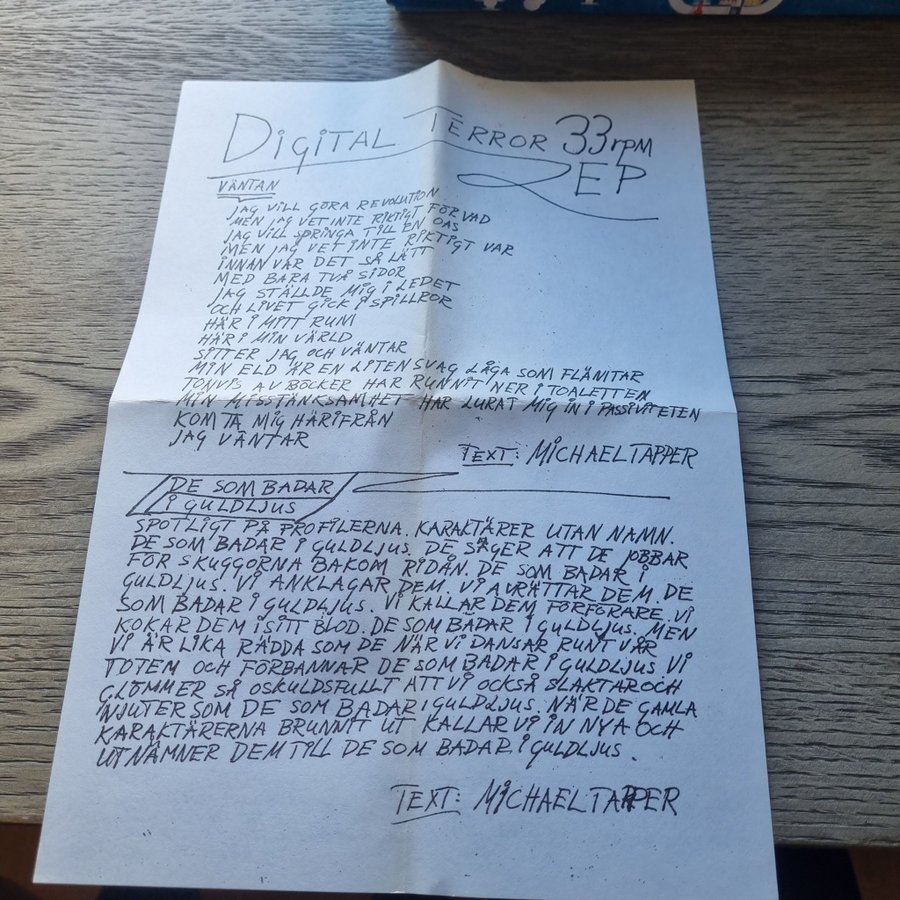 DIGITAL TERROR 33 rpm
EP
VÄNTAN
JAG VILL GÖRA REVOLUTION
MEN JAG VET INTE RIKTIGT FÖR VAD
JAG VILL SPRINGA TILL EN OAS
MEN JAG VET INTE RIKTIGT VAR
INNAN VAR DET SÅ LÄTT
MED BARA TVÅ SIDOR
JAG STÄLLDE MIG I LEDET
OCH LIVET GICK I SPILLROR
HÄR I MITT RUM
HÄR I MIN VÄRLD
SITTER JAG OCH VÄNTAR
MIN ELD ÄR EN LITEN SVAG LÅGA SOM FLÄMTAR
TONVIS AV BÖCKER HAR RUNNIT NER I TOALETTEN
MIN MISSTÄNKSAMHET HAR LURAT MIG IN I PASSIVITETEN
KOM TA MIG HÄRIFRÅN
JAG VÄNTAR
TEXT: MICHAEL TAPPER
DE SOM BADAR
I GULDLJUS
SPOTLIGT PÅ PROFILERNA. KARAKTÄRER UTAN NAMN.
DE SOM BADAR I GULDLJUS. DE SÄGER ATT DE JOBBAR
FÖR SKUGGORNA BAKOM RIDÅN. DE SOM BADAR I
GULDLJUS. VI ANKLAGAR DEM. VI AVRÄTTAR DEM. DE
SOM BADAR I GULDLJUS. VI KALLAR DEM FÖRFÖRARE. VI
KOKAR DEM I SITT BLOD. DE SOM BADAR I GULDLJUS. MEN
VI ÄR LIKA RÄDDA SOM DE NÄR VI DANSAR RUNT VÅR
TOTEM OCH FÖRBANNAR DE SOM BADAR I GULDLJUS. VI
GLÖMMER SÅ OSKULDSFULLT ATT VI OCKSÅ SLAKTAR OCH
NJUTER SOM DE SOM BADAR I GULDLJUS. NÄR DE GAMLA
KARAKTÄRERNA BRUNNIT UT KALLAR VI IN NYA OCH
UTNÄMNER DEM TILL DE SOM BADAR I GULDLJUS.
TEXT: MICHAEL TAPPER